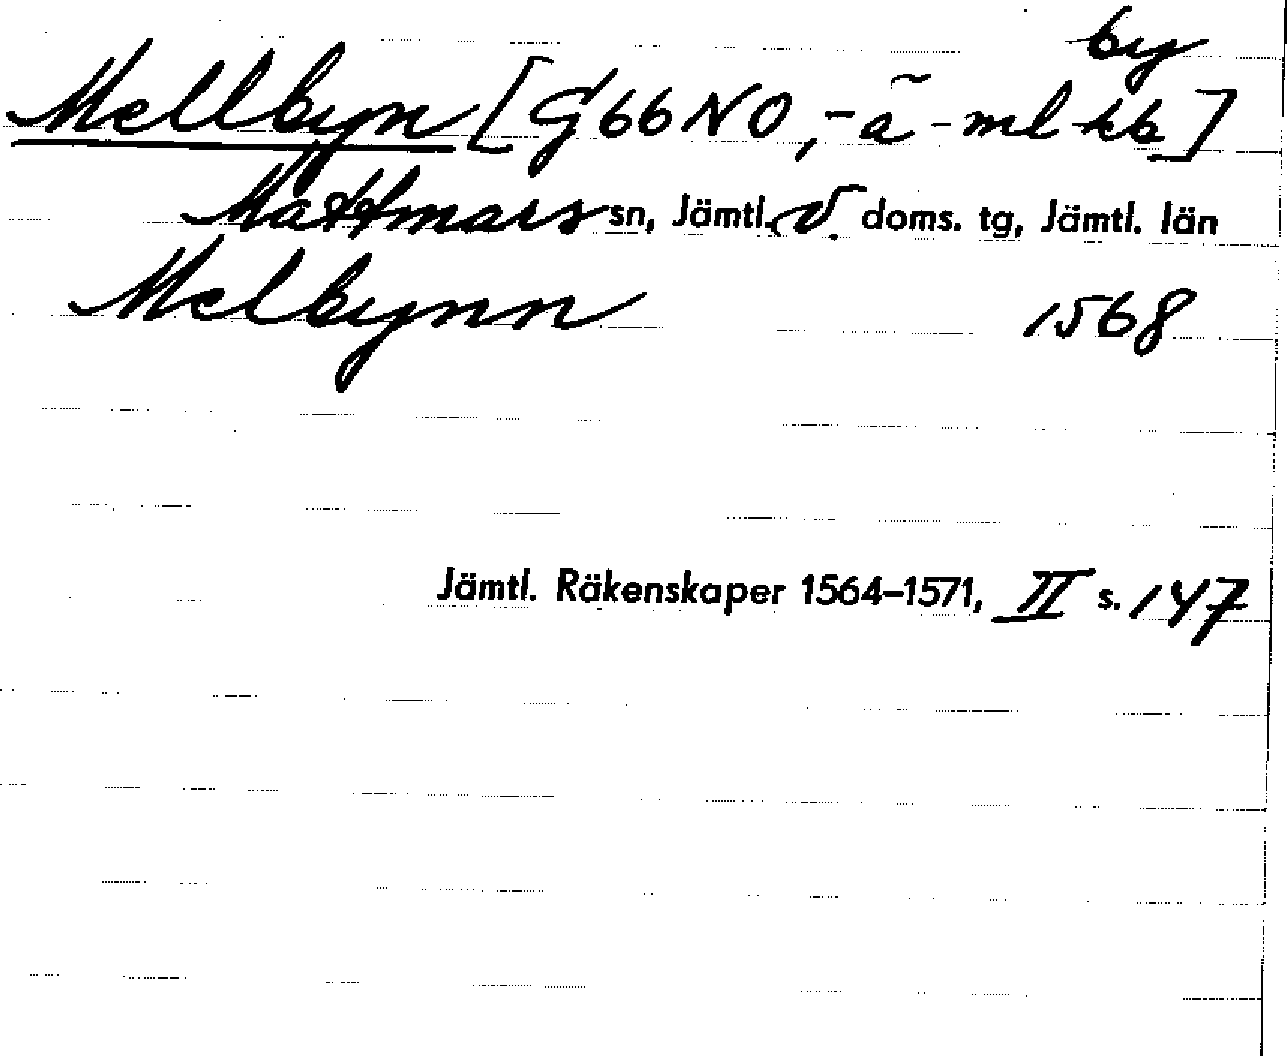 by
Mellbyn [G66NO,-ã-ml kb]
Mattmars sn, Jämtl. V. doms. tg, Jämtl. län
Melbynn 1568
Jämtl. Räkenskaper 1564–1571, II s. 147